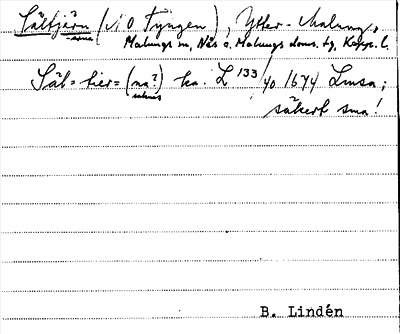 Sältjärn (vi O Tyngen), Ytter-Malung,
sms
Malungs sn, Nås o. Malungs doms. tg, Kopp. l.
Säl=tier=(na?) ka. L 133/40 1674 Lmsa;
saknas
säkert sma!
B. Lindén